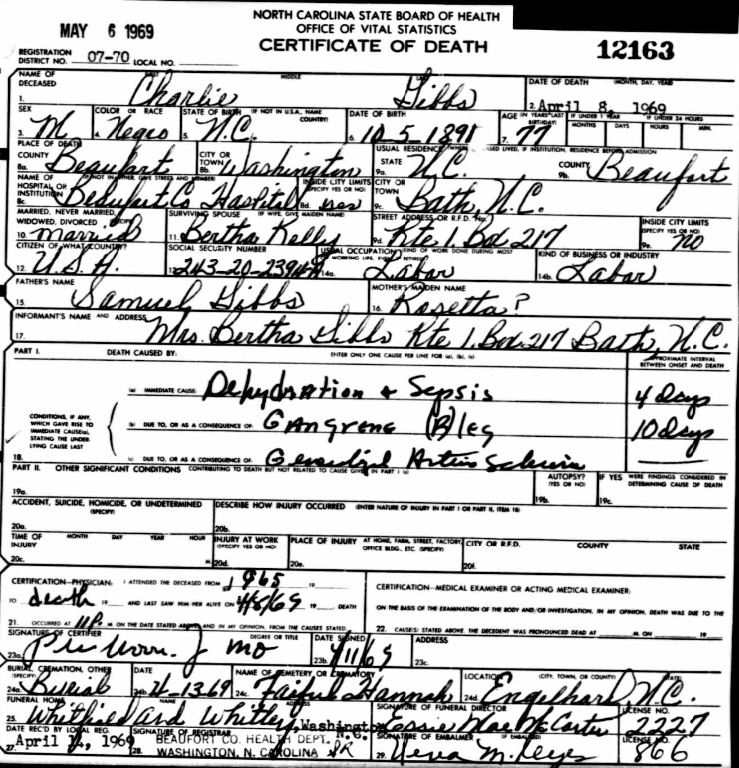 NORTH CAROLINA STATE BOARD OF HEALTH
OFFICE OF VITAL STATISTICS
CERTIFICATE OF DEATH
MAY 6 1969
12163
REGISTRATION DISTRICT NO. 07-70 LOCAL NO.
NAME OF DECEASED MIDDLE DATE OF DEATH (MONTH, DAY, YEAR)
1. Charlie Gibbs 2. April 8, 1969
SEX COLOR OR RACE STATE OF BIRTH (IF NOT IN U.S.A., NAME COUNTRY) DATE OF BIRTH AGE (IN YEARS LAST BIRTHDAY) IF UNDER 1 YEAR MONTHS DAYS IF UNDER 24 HOURS HOURS MIN.
3. M 4. Negro 5. N.C. 6. 10-5-1891 7. 77
PLACE OF DEATH USUAL RESIDENCE (WHERE DECEASED LIVED, IF INSTITUTION, RESIDENCE BEFORE ADMISSION
COUNTY 8a. Beaufort CITY OR TOWN 8b. Washington STATE 9a. N.C. COUNTY 9b. Beaufort
NAME OF HOSPITAL OR INSTITUTION (IF NOT IN EITHER, GIVE STREET AND NUMBER) 8c. Beaufort Co Hospital INSIDE CITY LIMITS (SPECIFY YES OR NO) 8d. yes CITY OR TOWN 9c. Bath, N.C.
MARRIED, NEVER MARRIED, WIDOWED, DIVORCED 10. married SURVIVING SPOUSE (IF WIFE, GIVE MAIDEN NAME) 11. Bertha Kelly STREET ADDRESS OR R.F.D. No. 9d. Rte 1. Box 217 INSIDE CITY LIMITS (SPECIFY YES OR NO) 9e. no
CITIZEN OF WHAT COUNTRY? SOCIAL SECURITY NUMBER USUAL OCCUPATION (KIND OF WORK DONE DURING MOST WORKING LIFE, EVEN IF RETIRED) KIND OF BUSINESS OR INDUSTRY
12. U.S.A. 13. 243-20-2394-A 14a. Labor 14b. Labor
FATHER'S NAME MOTHER'S MAIDEN NAME
15. Samuel Gibbs 16. Rosetta ?
INFORMANT'S NAME AND ADDRESS
17. Mrs. Bertha Gibbs Rte 1. Box 217 Bath, N.C.
PART I. DEATH CAUSED BY: ENTER ONLY ONE CAUSE PER LINE FOR (a), (b), (c) APPROXIMATE INTERVAL BETWEEN ONSET AND DEATH
(a) IMMEDIATE CAUSE: Dehydration & Sepsis 4 days
CONDITIONS, IF ANY, WHICH GAVE RISE TO IMMEDIATE CAUSE(a), STATING THE UNDERLYING CAUSE LAST
(b) DUE TO, OR AS A CONSEQUENCE OF: Gangrene (R) leg 10 days
18. (c) DUE TO, OR AS A CONSEQUENCE OF: Generalized
PART II. OTHER SIGNIFICANT CONDITIONS CONTRIBUTING TO DEATH BUT NOT RELATED TO CAUSE GIVEN IN PART I (a) AUTOPSY? (YES OR NO) IF YES WERE FINDINGS CONSIDERED IN DETERMINING CAUSE OF DEATH
19a. 19b. 19c.
ACCIDENT, SUICIDE, HOMICIDE, OR UNDETERMINED (SPECIFY) DESCRIBE HOW INJURY OCCURRED (ENTER NATURE OF INJURY IN PART I OR PART II, ITEM 18)
20a. 20b.
TIME OF INJURY MONTH DAY YEAR HOUR INJURY AT WORK (SPECIFY YES OR NO) PLACE OF INJURY AT HOME, FARM, STREET, FACTORY, OFFICE BLDG., ETC. (SPECIFY) CITY OR R.F.D. COUNTY STATE
20c. M. 20d. 20e. 20f.
CERTIFICATION—PHYSICIAN: I ATTENDED THE DECEASED FROM 1965 19 CERTIFICATION—MEDICAL EXAMINER OR ACTING MEDICAL EXAMINER:
TO death 19 AND LAST SAW HIM/HER ALIVE ON 4/8/69 19 DEATH ON THE BASIS OF THE EXAMINATION OF THE BODY AND/OR INVESTIGATION, IN MY OPINION, DEATH WAS DUE TO THE
21. OCCURRED AT 11P. M. ON THE DATE STATED ABOVE AND IN MY OPINION, FROM THE CAUSES STATED. 22. CAUSE(S) STATED ABOVE THE DECEDENT WAS PRONOUNCED DEAD AT M. ON 19
SIGNATURE OF CERTIFIER DEGREE OR TITLE DATE SIGNED ADDRESS
23a. MD 23b. 4/11/69 23c.
BURIAL, CREMATION, OTHER (SPECIFY) DATE NAME OF CEMETERY OR CREMATORY LOCATION (CITY, TOWN, OR COUNTY) STATE
24a. Burial 24b. 4-13-69 24c. Hannah 24d. Engelhard N.C.
FUNERAL HOME NAME ADDRESS SIGNATURE OF FUNERAL DIRECTOR LICENSE NO.
25. Whitfield and Whitley, Washington N.C. Essie Mae McCarter 2227
DATE REC'D BY LOCAL REG. SIGNATURE OF REGISTRAR SIGNATURE OF EMBALMER (IF EMBALMED) LICENSE NO.
27. April 14, 1969 28. BEAUFORT CO. HEALTH DEPT. 29. 866
WASHINGTON, N. CAROLINA